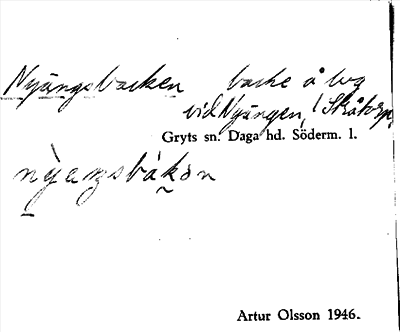 Nyängsbacken backe å väg
vid Nyängen, / Skåtorp,
Gryts sn. Daga hd. Söderm. l.
nỳaŋsbákən
Artur Olsson 1946.